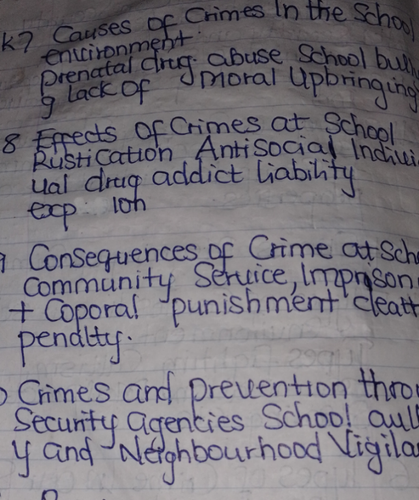 k7 Causes of Crimes In the School
environment.
Prenatal drug. abuse School bull
g lack of moral Upbringing
8 Effects Of Crimes at School
Rustication Antisocial Indivi
ual drug addict liability
exp ion
9 Consequences of Crime at Sch
Community Service, Imprison
+ Coporal punishment death
penalty.
Crimes and prevention thro
Security agencies School au
y and Neighbourhood Vigila